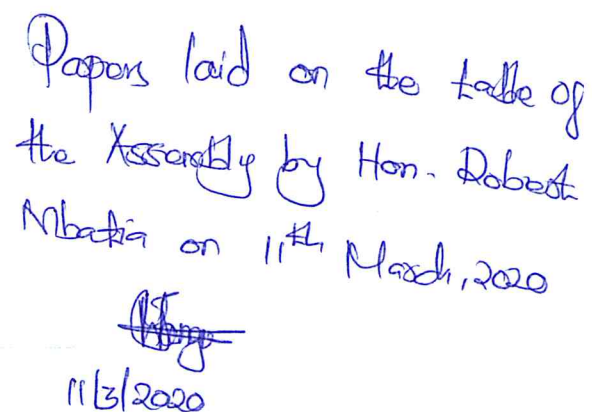 Papers laid on the table of
the Assembly by Hon. Robert
Mbatia on 11th March, 2020
11/3/2020